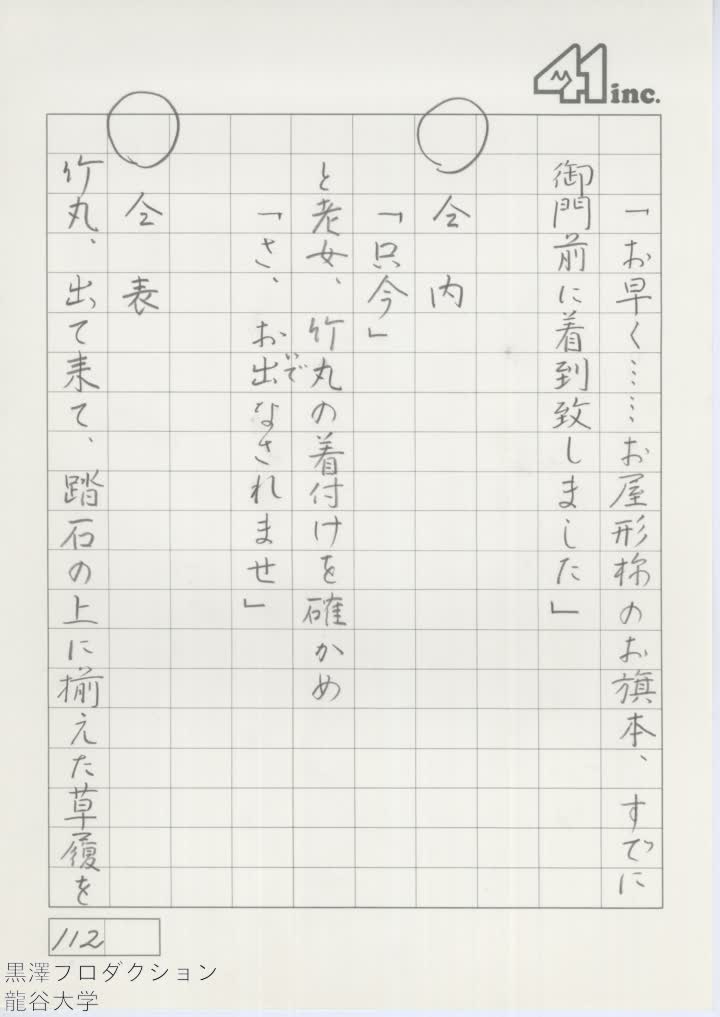 41 inc.
「お早く……お屋形様のお旗本、すでに
御門前に着到致しました」
◯ 仝 内
「只今」
と老女、竹丸の着付けを確かめ
「さ、お出なされませ」
いで
◯ 仝 表
竹丸、出て来て、踏石の上に揃えた草履を
112
黒澤プロダクション
龍谷大学